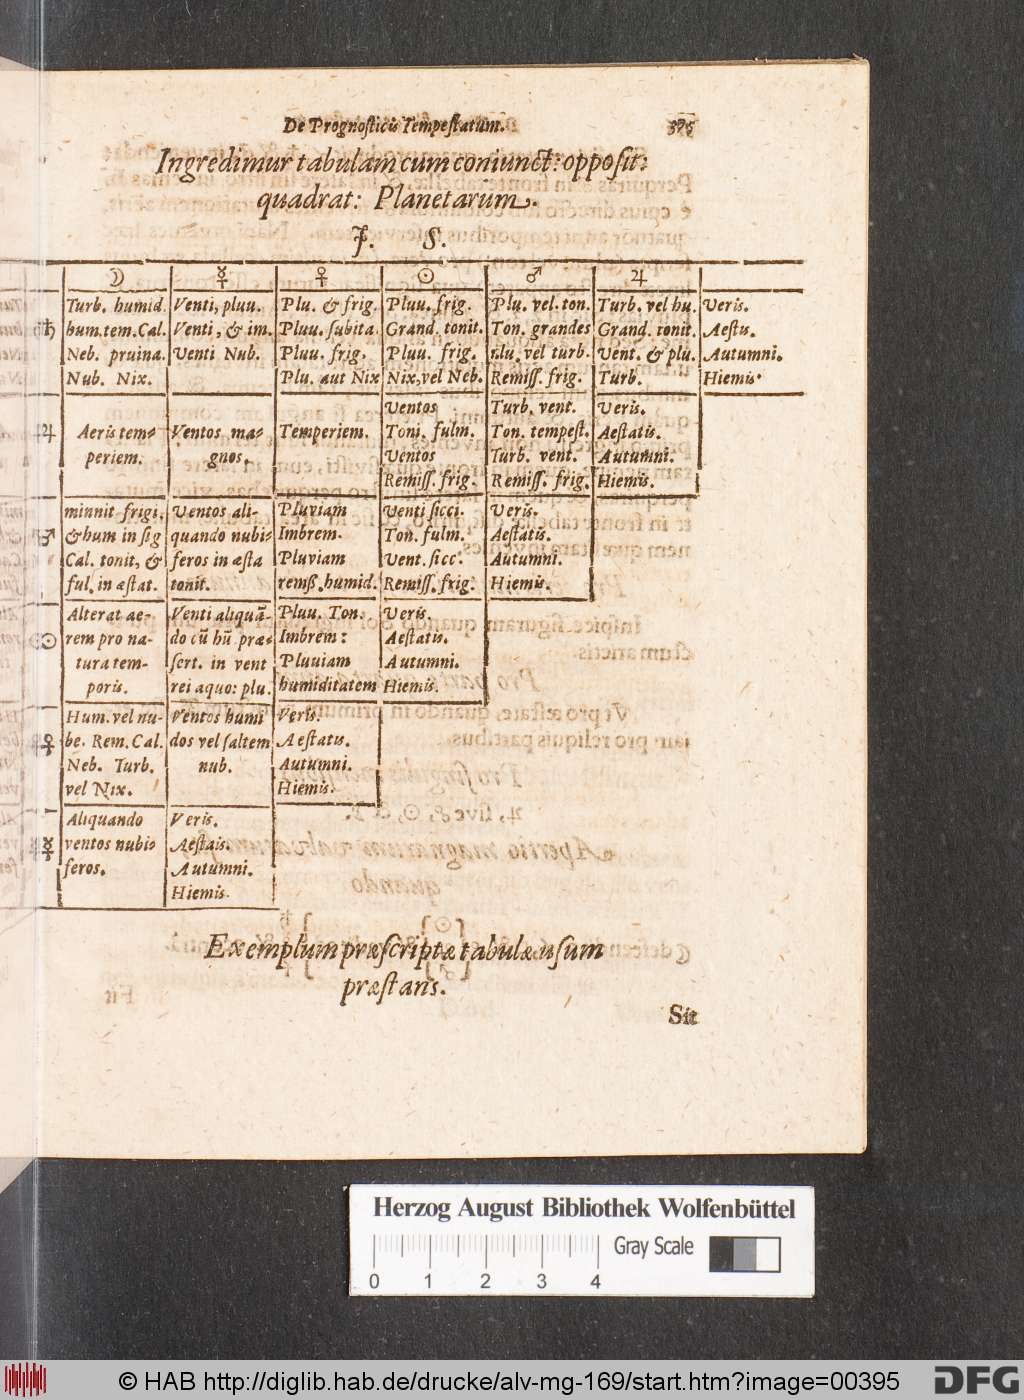 De Prognosticis Tempestatum. 375
Ingredimur tabulam cum coniunct: opposit:
quadrat: Planetarum.
F. S.
☽ ☿ ♀ ☉ ♂ ♃
Turb. humid. Venti, pluu. Plu. & frig. Pluu. frig. Plu. vel. ton. Turb. vel hu. Veris.
♄ hum. tem. Cal. Venti, & im. Pluu. subita. Grand. tonit. Ton. grandes Grand. tonit. Aestis.
Neb. pruina. Venti Nub. Pluu. frig. Pluu. frig. Plu. vel turb. Vent. & plu. Autumni.
Nub. Nix. Plu. aut Nix Nix, vel Neb. Remiss. frig. Turb. Hiemis.
Ventos Turb. vent. Veris.
♃ Aeris tem- Ventos ma- Temperiem. Toni. fulm. Ton. tempest. Aestatis.
periem. gnos. Ventos Turb. vent. Autumni.
Remiss. frig. Remiss. frig. Hiemis.
minnit frigi. Ventos ali- Pluviam Venti sicci. Veris.
♂ & hum in sig quando nubi- Imbrem. Ton. fulm. Aestatis.
Cal. tonit, & feros in æsta Pluviam Vent. sicc. Autumni.
ful. in æstat. tonit. remß. humid. Remiss. frig. Hiemis.
Alterat ae- Venti aliquã- Pluu. Ton. Veris.
☉ rem pro na- do cũ hũ præ- Imbrem: Aestatis.
tura tem- sert. in vent Pluuiam Autumni.
poris. rei aquo: plu. humiditatem Hiemis.
Hum. vel nu- Ventos humi Veris.
♀ be. Rem. Cal. dos vel saltem Aestatis.
Neb. Turb. nub. Autumni.
vel Nix. Hiemis.
Aliquando Veris.
☿ ventos nubi- Aestais.
feros. Autumni.
Hiemis.
Exemplum præscriptæ tabulæ usum
præstans.
Sit
Herzog August Bibliothek Wolfenbüttel
Gray Scale
0 1 2 3 4
© HAB http://diglib.hab.de/drucke/alv-mg-169/start.htm?image=00395
DFG